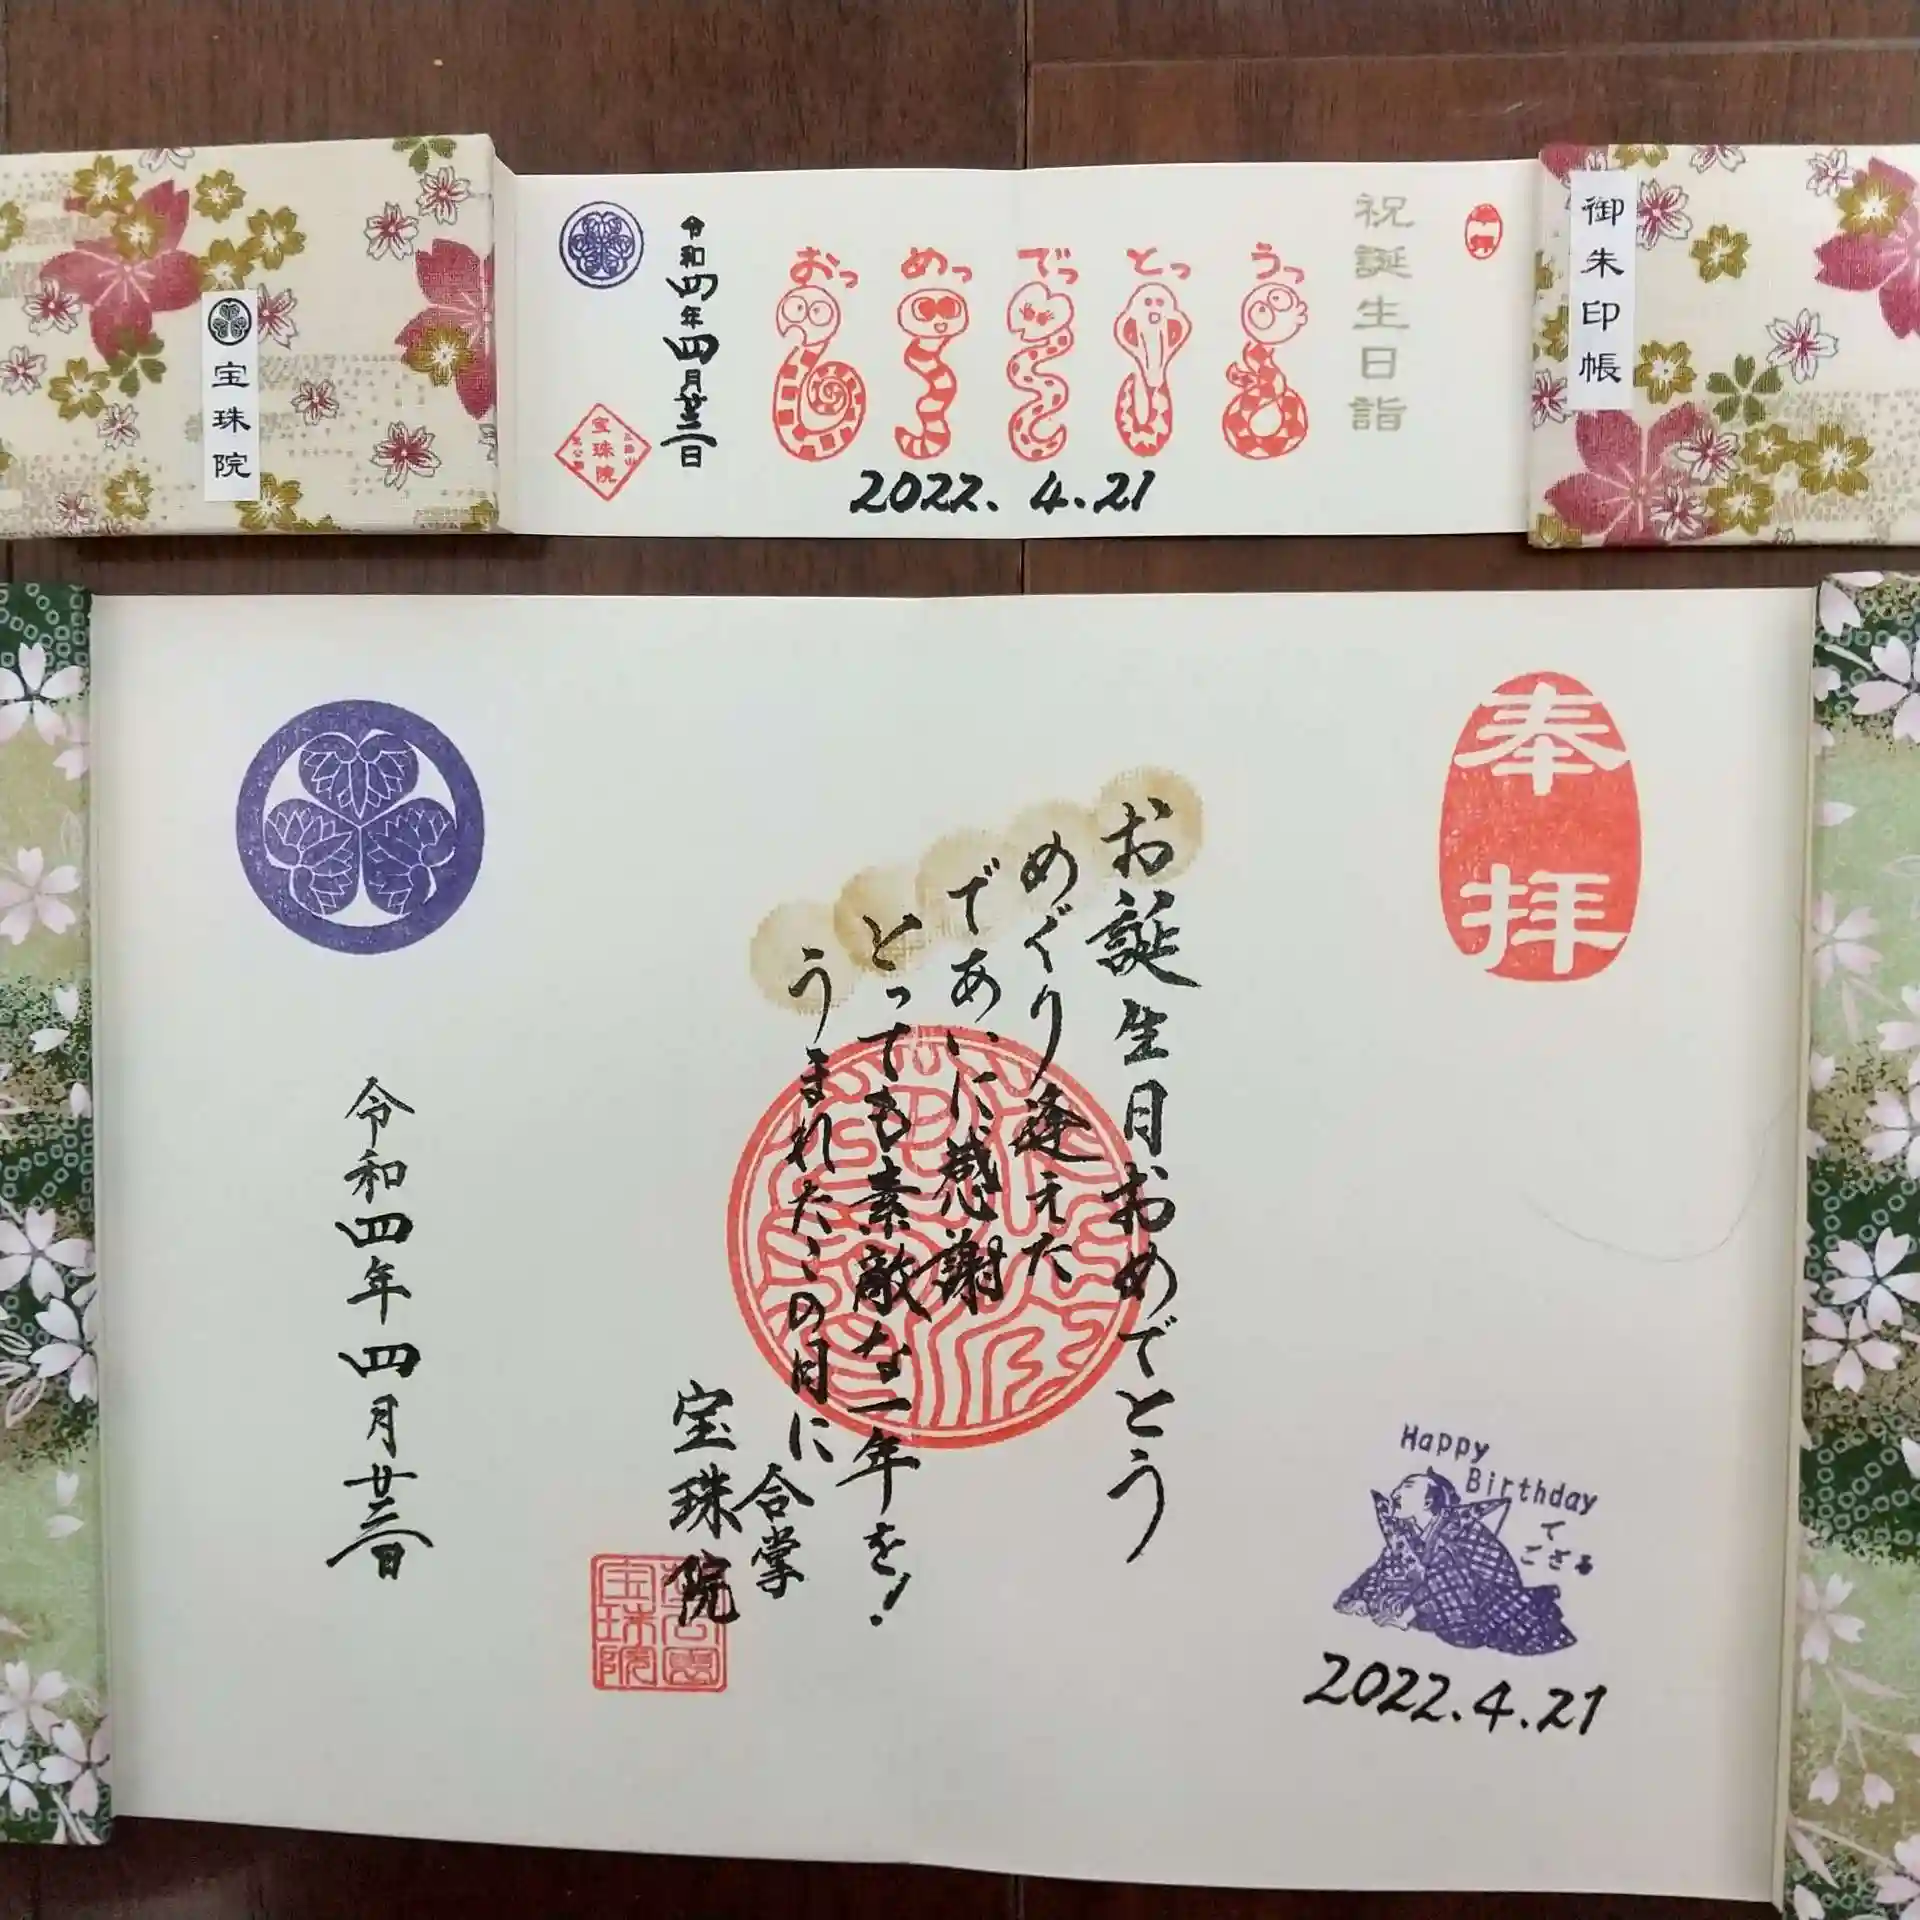 御朱印帳
一拝
祝誕生日詣
おっ めっ でっ とっ うっ
2022. 4.21
令和四年四月廿三日
宝珠院
宝珠院
奉拝
お誕生日おめでとう
めぐり逢えた
であいに感謝
とっても素敵な一年を!
うまれたこの日に
合掌
宝珠院
宝珠院
令和四年四月廿三日
Happy
Birthday
で
ござる
2022.4.21